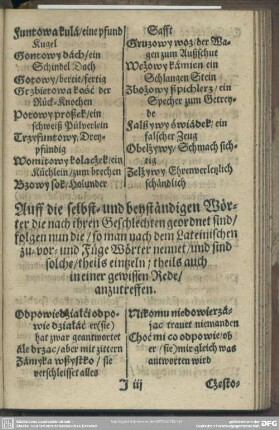 Funtowa kula/ eine pfund
Kugel
Gontowy dách/ ein
Schindel Dach
Gotowy/ bereit/ fertig
Grzbietowa kość der
Rück-Knochen
Potowy proszek/ ein
schweiß Pülverlein
Trzyfuntowy/ Drey-
pfündig
Womitowy kolaczek/ ein
Küchlein/ zum brechen
Bzowy sok/ Holunder
Safft
Gruzowy woz/ der Wa-
gen zum Außschut
Wężowy kámien/ ein
Schlangen Stein
Zbożowy szpichlerz/ ein
Specher zum Getrey-
de
Falszywy świádek/ ein
falscher Zeug
Obelżywy/ Schmach sich-
tig
Zelżywy Ehrenverletzlich
schändlich
Auff die selbst- und beyständigen Wör-
ter die nach ihren Geschlechten geordnet sind/
folgen nun die/ so man nach dem Lateinischen
zu-vor- und Füge Wörter nennet/ und sind
solche/ theils eintzeln/ theils auch
in einer gewissen Rede/
anzutreffen.
Odpowiedział ci odpo-
wie działać er(sie)
hat zwar geantwortet
Ale drżąc/ aber mit zittern
Zámyka wszystko/ sie
verschleisset alles
Nikomu niedowierzá-
jąc trauet niemanden
Choć mi co odpowie/ ob
er/ (sie) mir gleich was
antworten wird
J iij
Często-